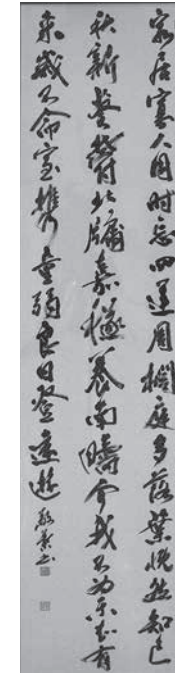 窮居寡人用時忘四運周櫚庭多落葉慨然知已
秋新葵鬱北牖嘉穟養南疇今我不為樂知有
來歲不命室携童弱良日登遠遊